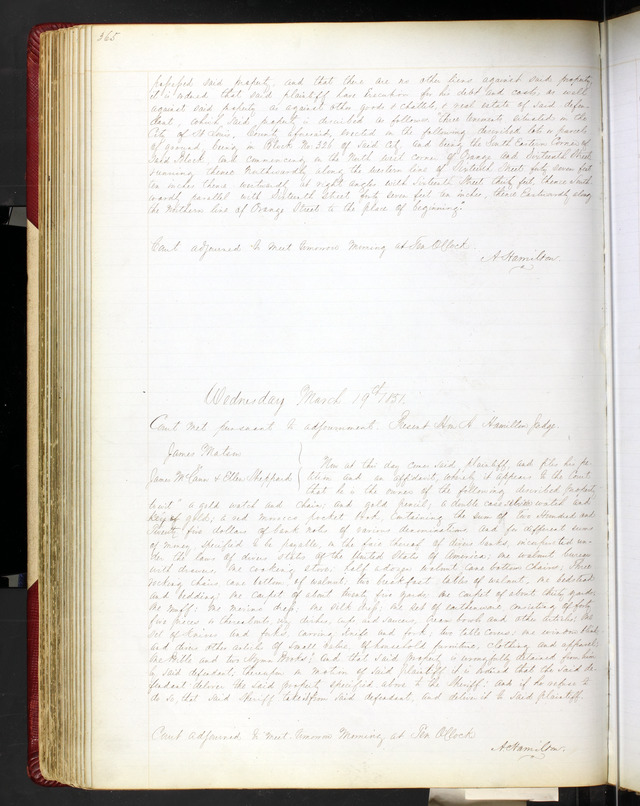 365
said property, and that there are no other liens against said property
it is ordered that said plaintiff have Execution for his debt and costs, as well
against said property as against other goods & chattels, & real estate of said defen-
dant, which said property is described as follows: Three tenements situated in the
City of St Louis, County aforesaid, erected on the following described lot or parcel
of ground, being in Block No 326 of said City, and being the South Eastern Corner of
said Block, and commencing on the North west corner of Orange and Sixteenth Streets
running thence Northwardly along the western line of Sixteenth Street forty seven feet
six inches thence westwardly at right angles with Sixteenth Street thirty feet, thence South-
wardly parallel with Sixteenth Street forty seven feet six inches, thence Eastwardly along
the Northern line of Orange Street to the place of beginning."
Court adjourned to meet tomorrow Morning at Ten OClock.
A Hamilton
Wednesday March 19th 1851.
Court met pursuant to adjournment. Present Hon A. Hamilton Judge.
James
James McCann & Ellen Sheppard
Now at this day comes said, plaintiff, and files his pe-
tition and an affidavit, whereby it appears to the Court,
that he is the owner of the following described property
towit" a gold watch and chain, and gold pencil; a double case silver watch and
Key of gold; a red morocco pocket Book, containing the sum of two Hundred and
Twenty five dollars of bank notes of various denominations and for different sums
of money specified to be payable on the face thereof of divers banks incorporated un-
der the laws of divers states of the United States of America; one walnut bureau
with drawers, one cooking stove; half a dozen walnut cane bottom Chairs; three
rocking chairs, cane bottom, of walnut; two breakfast tables of walnut, one bedstead
and bedding; one carpet of about twenty five yards; one carpet of about thirty yards;
one muff; one merino dress; one silk dress; one set of earthenware consisting of forty
five pieces to thereabouts, viz dishes, cups and saucers, bowls and other articles; one
set of knives and forks, carving knife and fork; two table covers; one window blind
and divers other articles of small value of household furniture, clothing and apparel
one Bible and two Hymn Books;" and that said property is wrongfully detained from him
by said defendant, thereupon on motion of said plaintiff it is ordered that the said de-
fendant deliver the said property specified above to the Sheriff: and if he refuse to
do so, that said Sheriff take it from said defendant, and deliver it to said plaintiff.
Court adjourned to meet Tomorrow Morning at Ten OClock
A Hamilton.